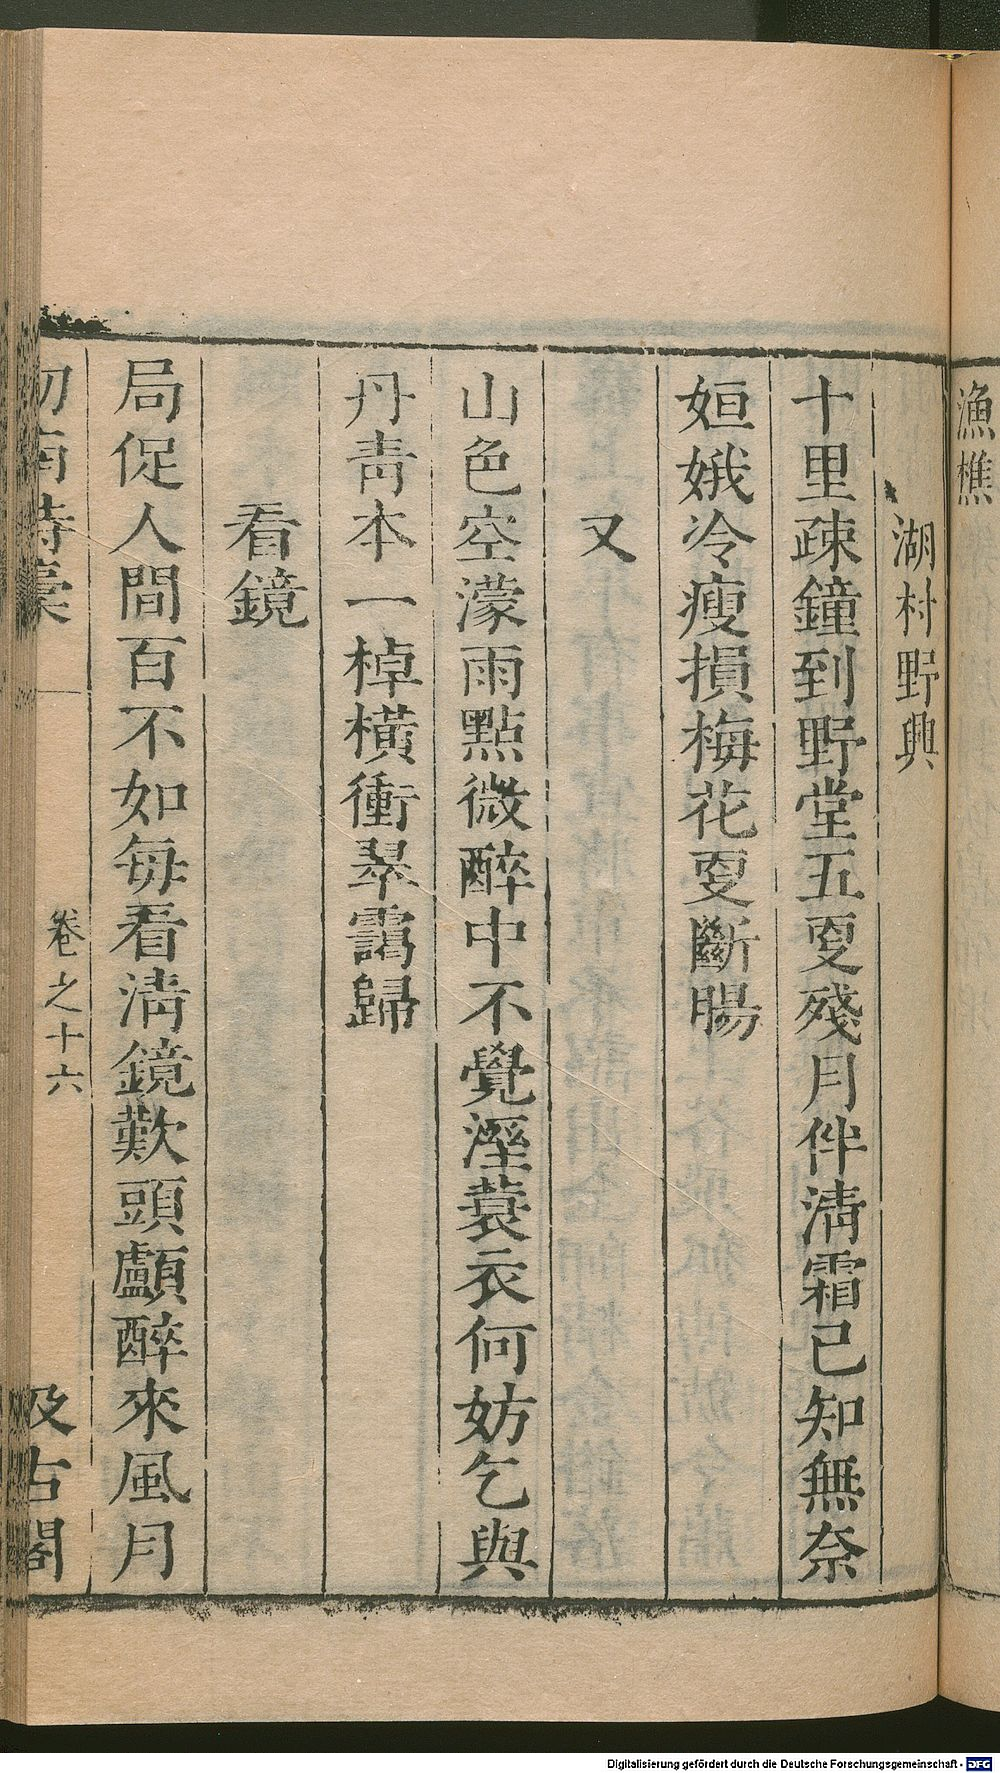 漁樵
湖村野興
十里疎鐘到野堂五更殘月伴清霜已知無奈
姮娥冷瘦損梅花更斷腸
又
山色空濛雨點微醉中不覺溼蓑衣何妨乞與
丹青本一棹橫衝翠靄歸
看鏡
局促人間百不如每看清鏡歎頭顱醉來風月
劒南詩稾 卷之十六 汲古閣
Digitalisierung gefördert durch die Deutsche Forschungsgemeinschaft - DFG